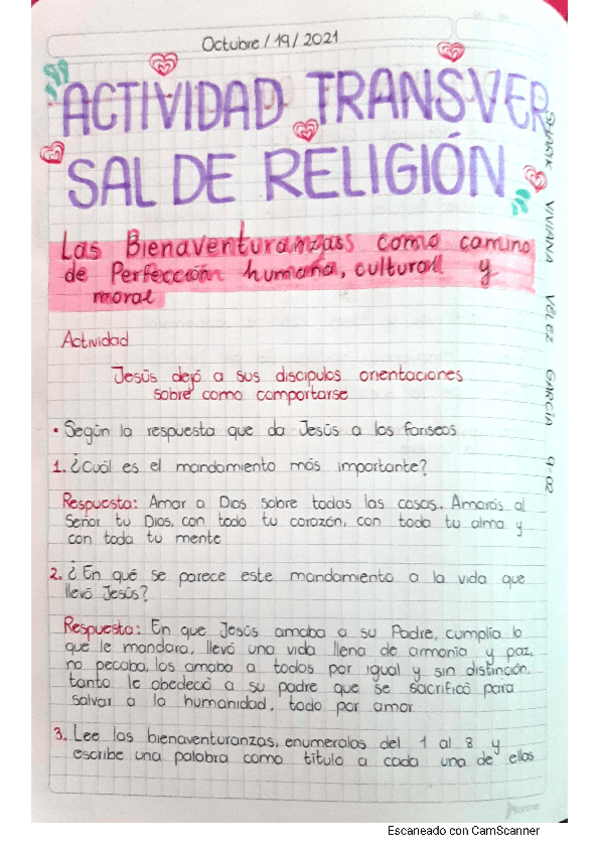 Octubre / 19 / 2021
ACTIVIDAD TRANSVER
SAL DE RELIGIÓN
SHARIK VIVIANA VÉLEZ GARCÍA 9-02
Las Bienaventuranzass como camino
de Perfección humana, cultural y
moral
Actividad
Jesús dejó a sus discipulos orientaciones
sobre como comportarse
• Según la respuesta que da Jesús a los fariseos
1. ¿Cuál es el mandamiento más importante?
Respuesta: Amar a Dios sobre todas las cosas. Amarás al
Señor tu Dios, con todo tu corazón, con toda tu alma y
con toda tu mente
2. ¿En qué se parece este mandamiento a la vida que
llevó Jesús?
Respuesta: En que Jesús amaba a su Padre, cumplía lo
que le mandara, llevó una vida llena de armonia y paz,
no pecaba, los amaba a todos por igual y sin distinción,
tanto le obedecó a su padre que se sacrificó para
salvar a la humanidad, todo por amor
3. Lee las bienaventuranzas, enumeralas del 1 al 8 y
escribe una palabra como título a cada una de ellas
Escaneado con CamScanner